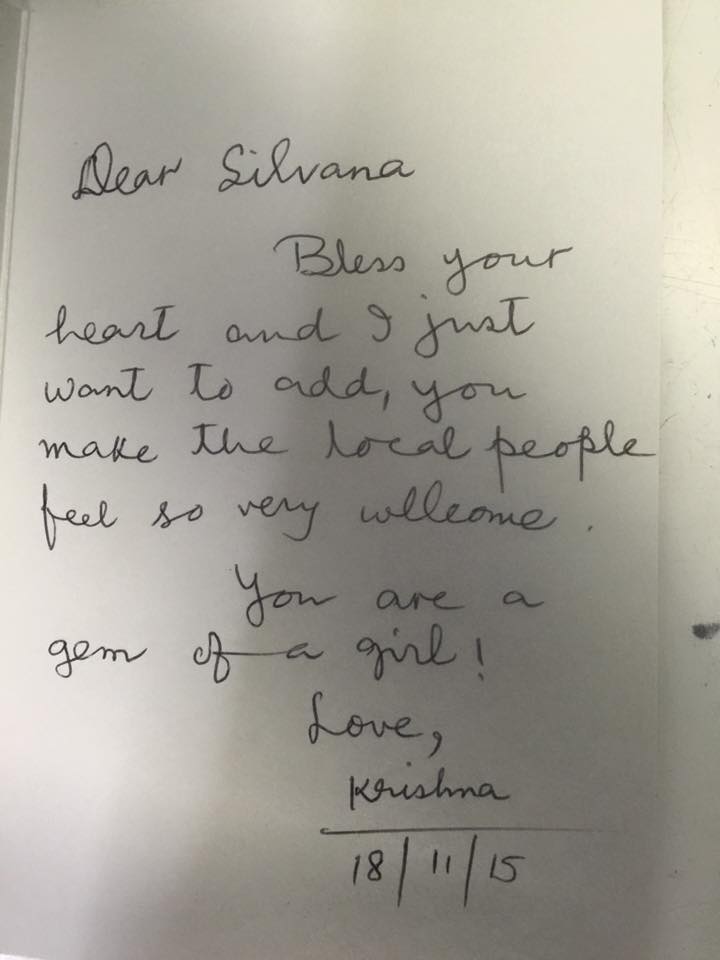 Dear Silvana
Bless your
heart and I just
want to add, you
make the local people
feel so very wllcome.
You are a
gem of a girl!
Love,
Krishna
18/11/15